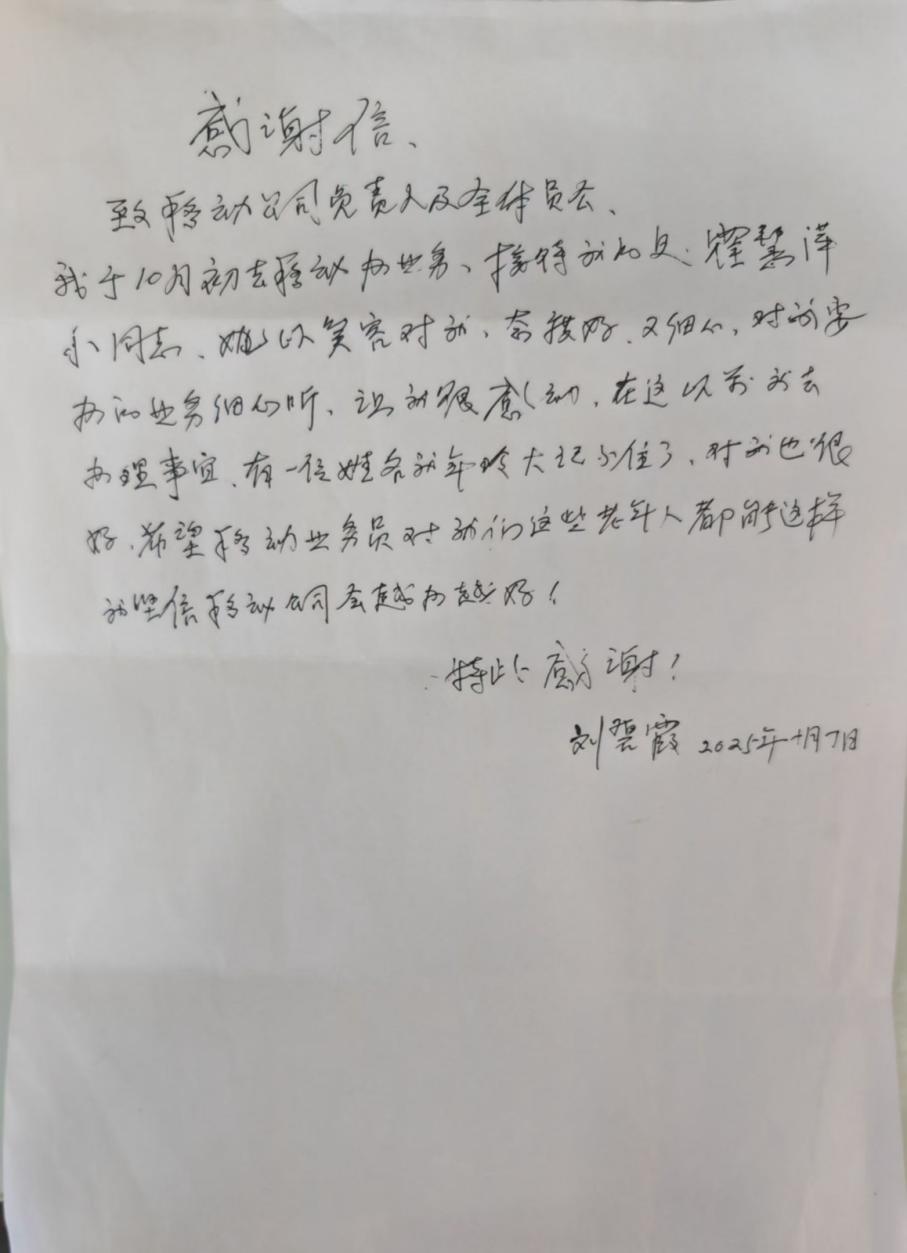 感谢信、
致移动公司负责人及全体员工、
我于10月初去移动办业务、接待我的是:霍慧泽
小同志、她以笑容对我、态度好、又细心、对我要
办的业务细心听、让我很感动、在这以前我去
办理事宜、有一位姓名我年龄大记不住了、对我也很
好、希望移动业务员对我们这些老年人都能这样
我坚信移动公司会越办越好!
特此感谢!
刘碧霞 2025年十月7日